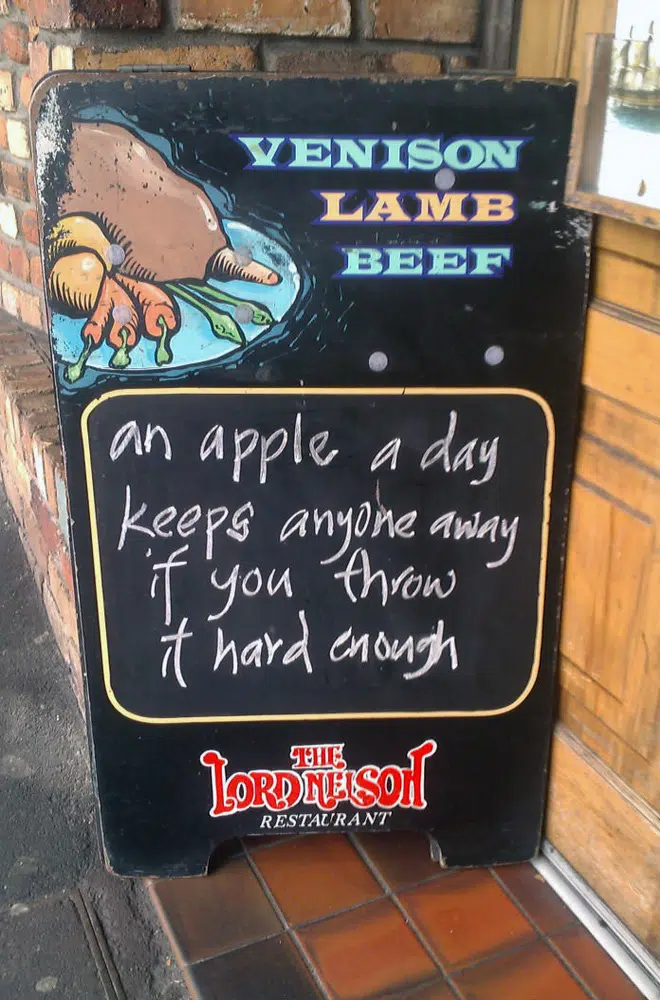 VENISON
LAMB
BEEF
an apple a day
keeps anyone away
if you throw
it hard enough
THE
LORD NELSON
RESTAURANT